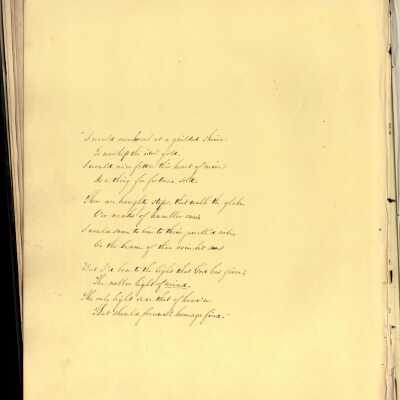 "I would not kneel at a gilded shrine
To worship the idol gold,
I would not fetter this heart of mine
As a thing for fortune sold.
There are haughty steps that walk the globe
O'er necks of humbler ones
I would scorn to bow to their jewell'd robe
Or the beam of their
But I'd bow to the light that God has given,
The nobler light of mind,
The only light save that of heav'n
That should freewill homage find."